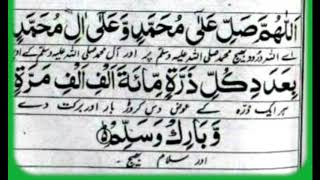 اَللّٰهُمَّ صَلِّ عَلٰى مُحَمَّدٍ وَّعَلٰى اٰلِ مُحَمَّدٍ
اے اللہ درود بھیج محمد صلی اللہ علیہ وسلم پر اور آل محمد صلی اللہ علیہ وسلم کے اوپر
بِعَدَدِ كُلِّ ذَرَّةٍ مِّائَةَ اَلْفِ اَلْفِ مَرَّةٍ
ہر ایک ذرہ کے عوض دس کروڑ بار اور برکت دے
وَّبَارِكْ وَسَلِّمْ
اور سلام بھیج ۔